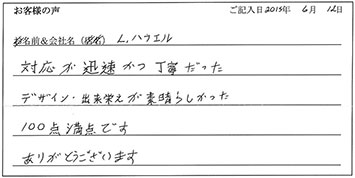 お客様の声 ご記入日2015年 6月 12日
お名前&会社名(匿名) L.ハウエル
対応が迅速かつ丁寧だった
デザイン・出来栄えが素晴らしかった
100点満点です
ありがとうございます